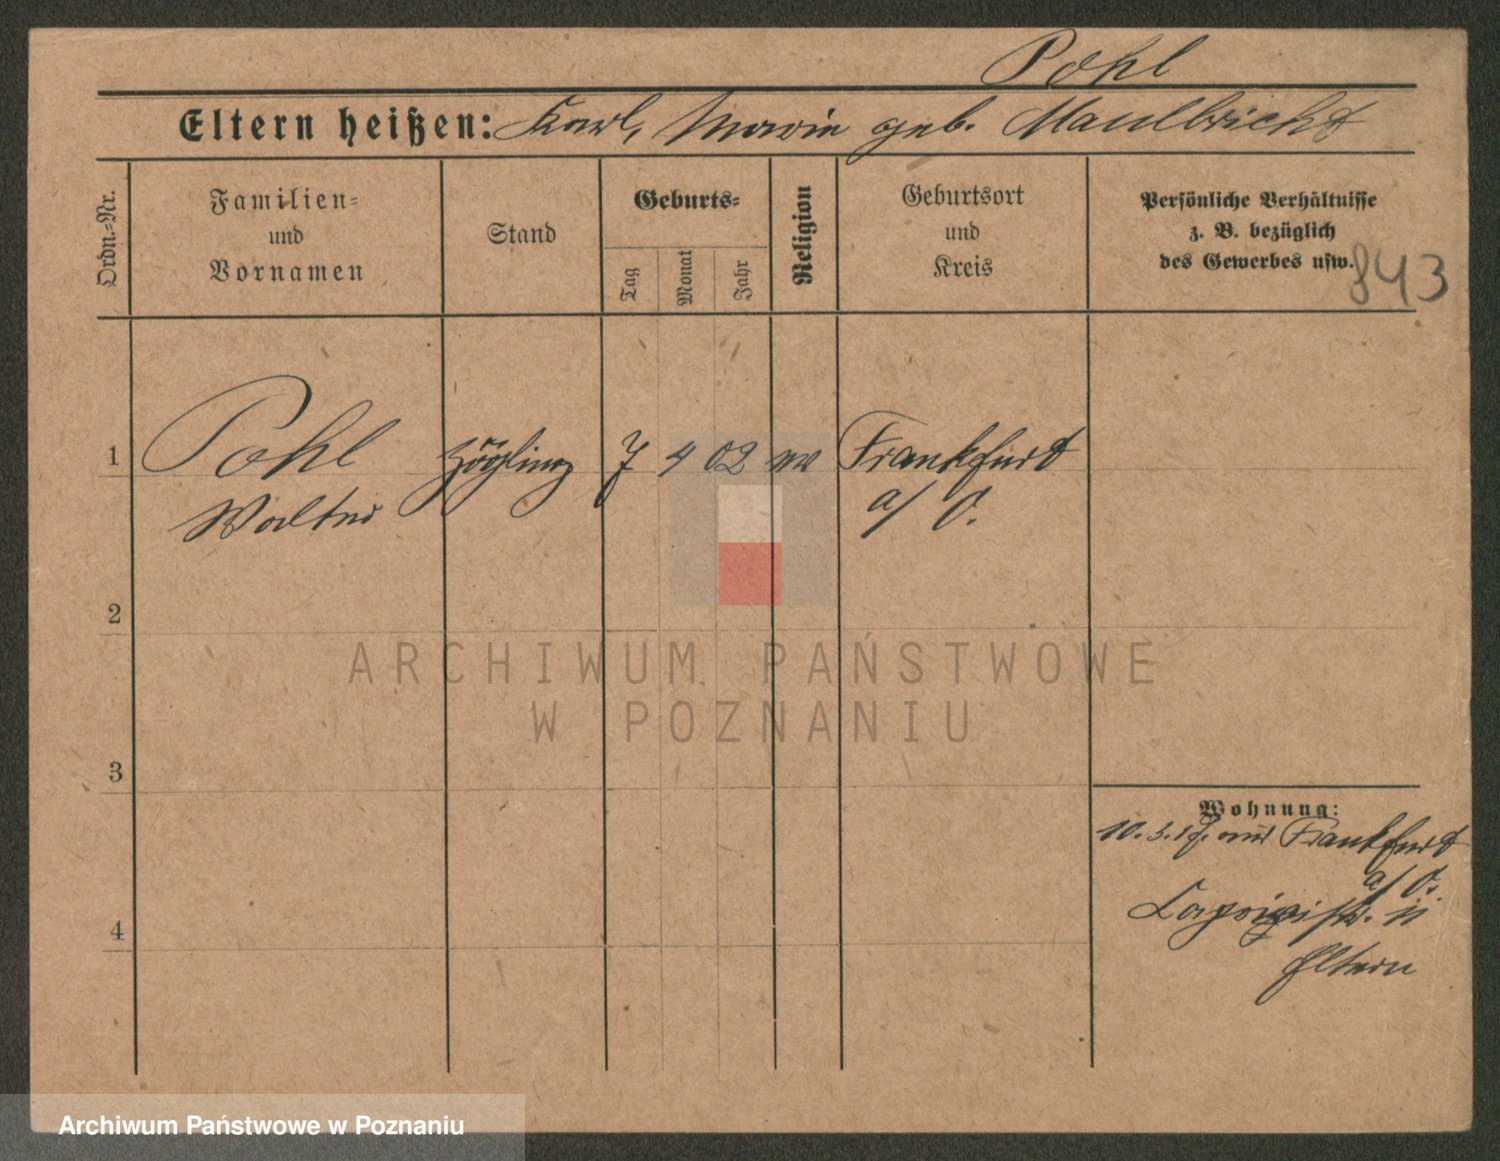 Pohl
Eltern heißen: Karl, Marie geb. Maulbricht
Ordn.-Nr.
Familien-
und
Vornamen
Stand
Geburts-
Tag
Monat
Jahr
Religion
Geburtsort
und
Kreis
Persönliche Verhältnisse
z. B. bezüglich
des Gewerbes usw.
843
1 Pohl Zögling 7 4 02 ev Frankfurt
Walter a/O.
2
ARCHIWUM PAŃSTWOWE
W POZNANIU
3
Wohnung:
10.3.17. aus Frankfurt
a/O.
11
4
Eltern
Archiwum Państwowe w Poznaniu